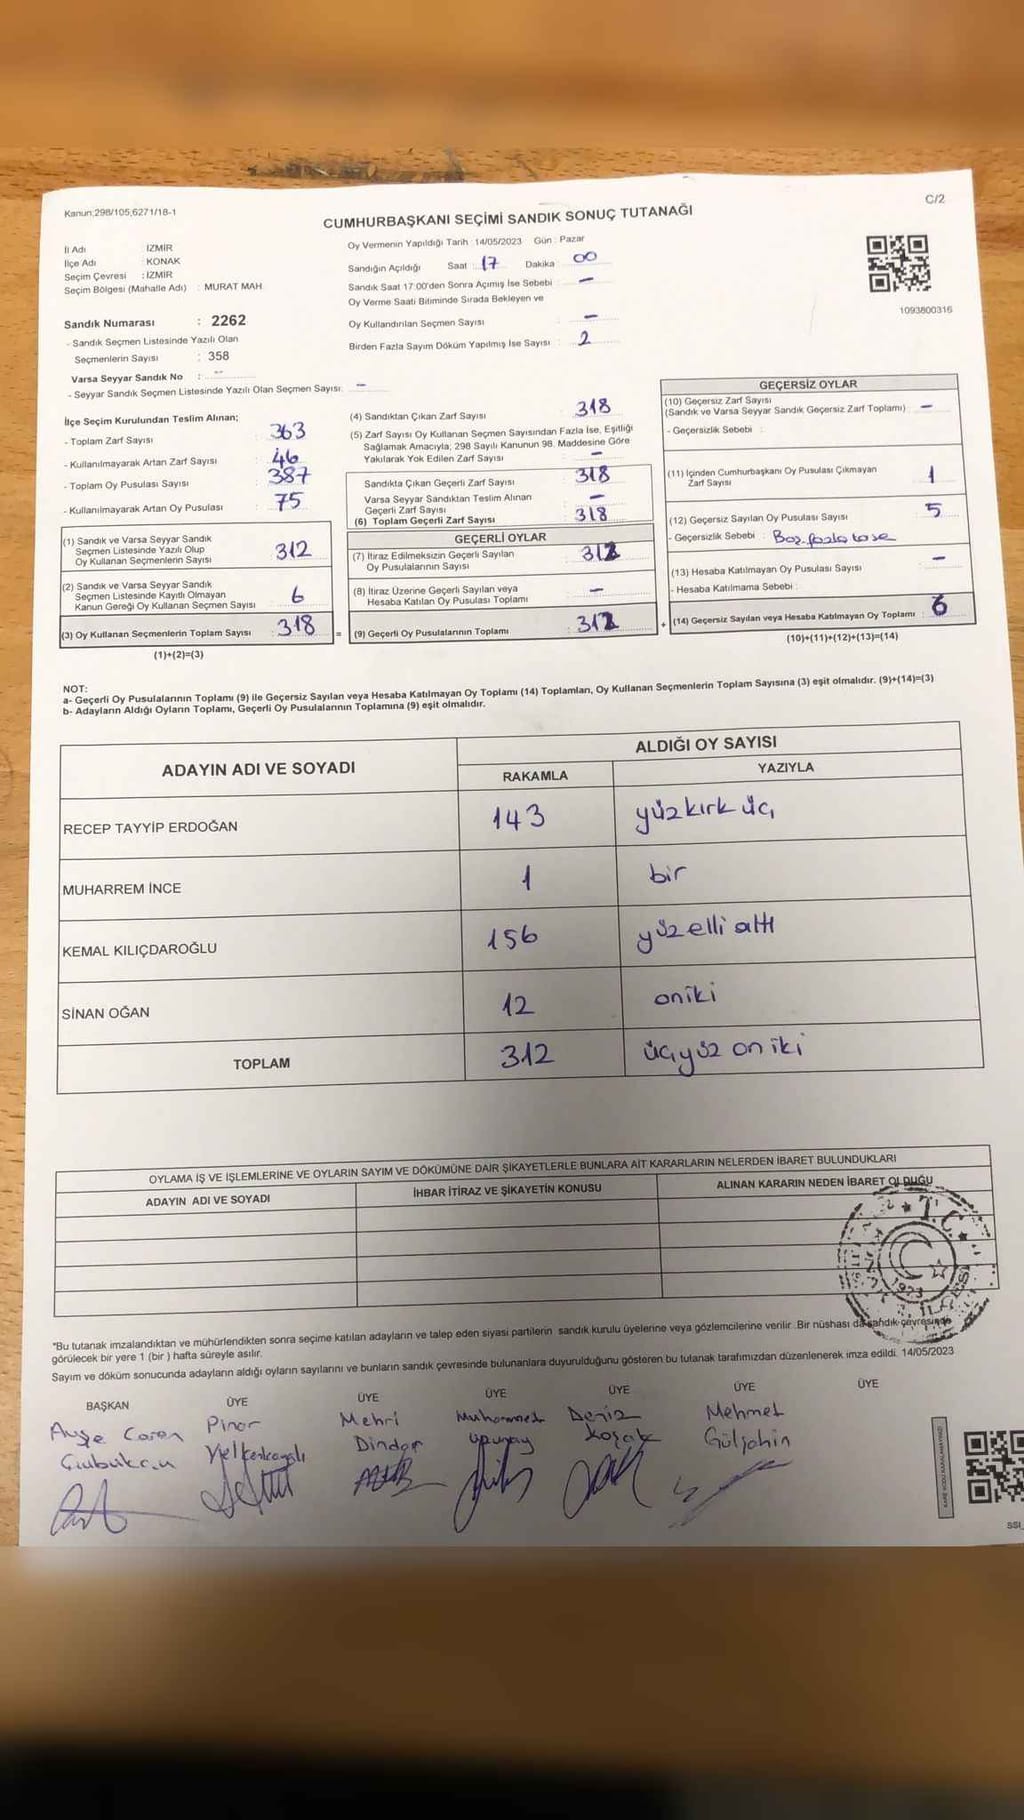 Kanun:298/105,6271/18-1
C/2
CUMHURBAŞKANI SEÇİMİ SANDIK SONUÇ TUTANAĞI
İl Adı İZMİR
İlçe Adı : KONAK
Seçim Çevresi : İZMİR
Seçim Bölgesi (Mahalle Adı) : MURAT MAH.
Oy Vermenin Yapıldığı Tarih : 14/05/2023 Gün : Pazar
Sandığın Açıldığı Saat : 17 Dakika : 00
Sandık Saat 17:00'den Sonra Açımış İse Sebebi : -
Oy Verme Saati Bitiminde Sırada Bekleyen ve
Oy Kullandırılan Seçmen Sayısı : -
Birden Fazla Sayım Döküm Yapılmış İse Sayısı : 2
1093800316
Sandık Numarası : 2262
- Sandık Seçmen Listesinde Yazılı Olan
Seçmenlerin Sayısı : 358
Varsa Seyyar Sandık No : --
- Seyyar Sandık Seçmen Listesinde Yazılı Olan Seçmen Sayısı: -
İlçe Seçim Kurulundan Teslim Alınan;
- Toplam Zarf Sayısı : 363
- Kullanılmayarak Artan Zarf Sayısı : 46
- Toplam Oy Pusulası Sayısı : 387
- Kullanılmayarak Artan Oy Pusulası : 75
(1) Sandık ve Varsa Seyyar Sandık
Seçmen Listesinde Yazılı Olup
Oy Kullanan Seçmenlerin Sayısı : 312
(2) Sandık ve Varsa Seyyar Sandık
Seçmen Listesinde Kayıtlı Olmayan
Kanun Gereği Oy Kullanan Seçmen Sayısı : 6
(3) Oy Kullanan Seçmenlerin Toplam Sayısı : 318
(1)+(2)=(3)
(4) Sandıktan Çıkan Zarf Sayısı : 318
(5) Zarf Sayısı Oy Kullanan Seçmen Sayısından Fazla İse, Eşitliği
Sağlamak Amacıyla; 298 Sayılı Kanunun 98. Maddesine Göre
Yakılarak Yok Edilen Zarf Sayısı : -
Sandıkta Çıkan Geçerli Zarf Sayısı : 318
Varsa Seyyar Sandıktan Teslim Alınan
Geçerli Zarf Sayısı : -
(6) Toplam Geçerli Zarf Sayısı : 318
GEÇERLİ OYLAR
(7) İtiraz Edilmeksizin Geçerli Sayılan
Oy Pusulalarının Sayısı : 312
(8) İtiraz Üzerine Geçerli Sayılan veya
Hesaba Katılan Oy Pusulası Toplamı : -
= (9) Geçerli Oy Pusulalarının Toplamı : 312
GEÇERSİZ OYLAR
(10) Geçersiz Zarf Sayısı
(Sandık ve Varsa Seyyar Sandık Geçersiz Zarf Toplamı) : -
- Geçersizlik Sebebi :
(11) İçinden Cumhurbaşkanı Oy Pusulası Çıkmayan
Zarf Sayısı : 1
(12) Geçersiz Sayılan Oy Pusulası Sayısı : 5
- Geçersizlik Sebebi :
(13) Hesaba Katılmayan Oy Pusulası Sayısı : -
- Hesaba Katılmama Sebebi :
+ (14) Geçersiz Sayılan veya Hesaba Katılmayan Oy Toplamı : 6
(10)+(11)+(12)+(13)=(14)
NOT:
a- Geçerli Oy Pusulalarının Toplamı (9) ile Geçersiz Sayılan veya Hesaba Katılmayan Oy Toplamı (14) Toplamları, Oy Kullanan Seçmenlerin Toplam Sayısına (3) eşit olmalıdır. (9)+(14)=(3)
b- Adayların Aldığı Oyların Toplamı, Geçerli Oy Pusulalarının Toplamına (9) eşit olmalıdır.
ADAYIN ADI VE SOYADI
ALDIĞI OY SAYISI
RAKAMLA YAZIYLA
RECEP TAYYİP ERDOĞAN 143 yüzkırk üç
MUHARREM İNCE 1 bir
KEMAL KILIÇDAROĞLU 156 yüzelli altı
SİNAN OĞAN 12 oniki
TOPLAM 312 üçyüz on iki
OYLAMA İŞ VE İŞLEMLERİNE VE OYLARIN SAYIM VE DÖKÜMÜNE DAİR ŞİKAYETLERLE BUNLARA AİT KARARLARIN NELERDEN İBARET BULUNDUKLARI
ADAYIN ADI VE SOYADI İHBAR İTİRAZ VE ŞİKAYETİN KONUSU ALINAN KARARIN NEDEN İBARET OLDUĞU
T.C.
1923
*Bu tutanak imzalandıktan ve mühürlendikten sonra seçime katılan adayların ve talep eden siyasi partilerin sandık kurulu üyelerine veya gözlemcilerine verilir. Bir nüshası da sandık çevresinde
görülecek bir yere 1 (bir ) hafta süreyle asılır.
Sayım ve döküm sonucunda adayların aldığı oyların sayılarını ve bunların sandık çevresinde bulunanlara duyurulduğunu gösteren bu tutanak tarafımızdan düzenlenerek imza edildi. 14/05/2023
BAŞKAN ÜYE ÜYE ÜYE ÜYE ÜYE ÜYE
Ayşe Ceren Pınar Mehri Muhammed Deniz Mehmet
Dindar Koçak Gülşahin